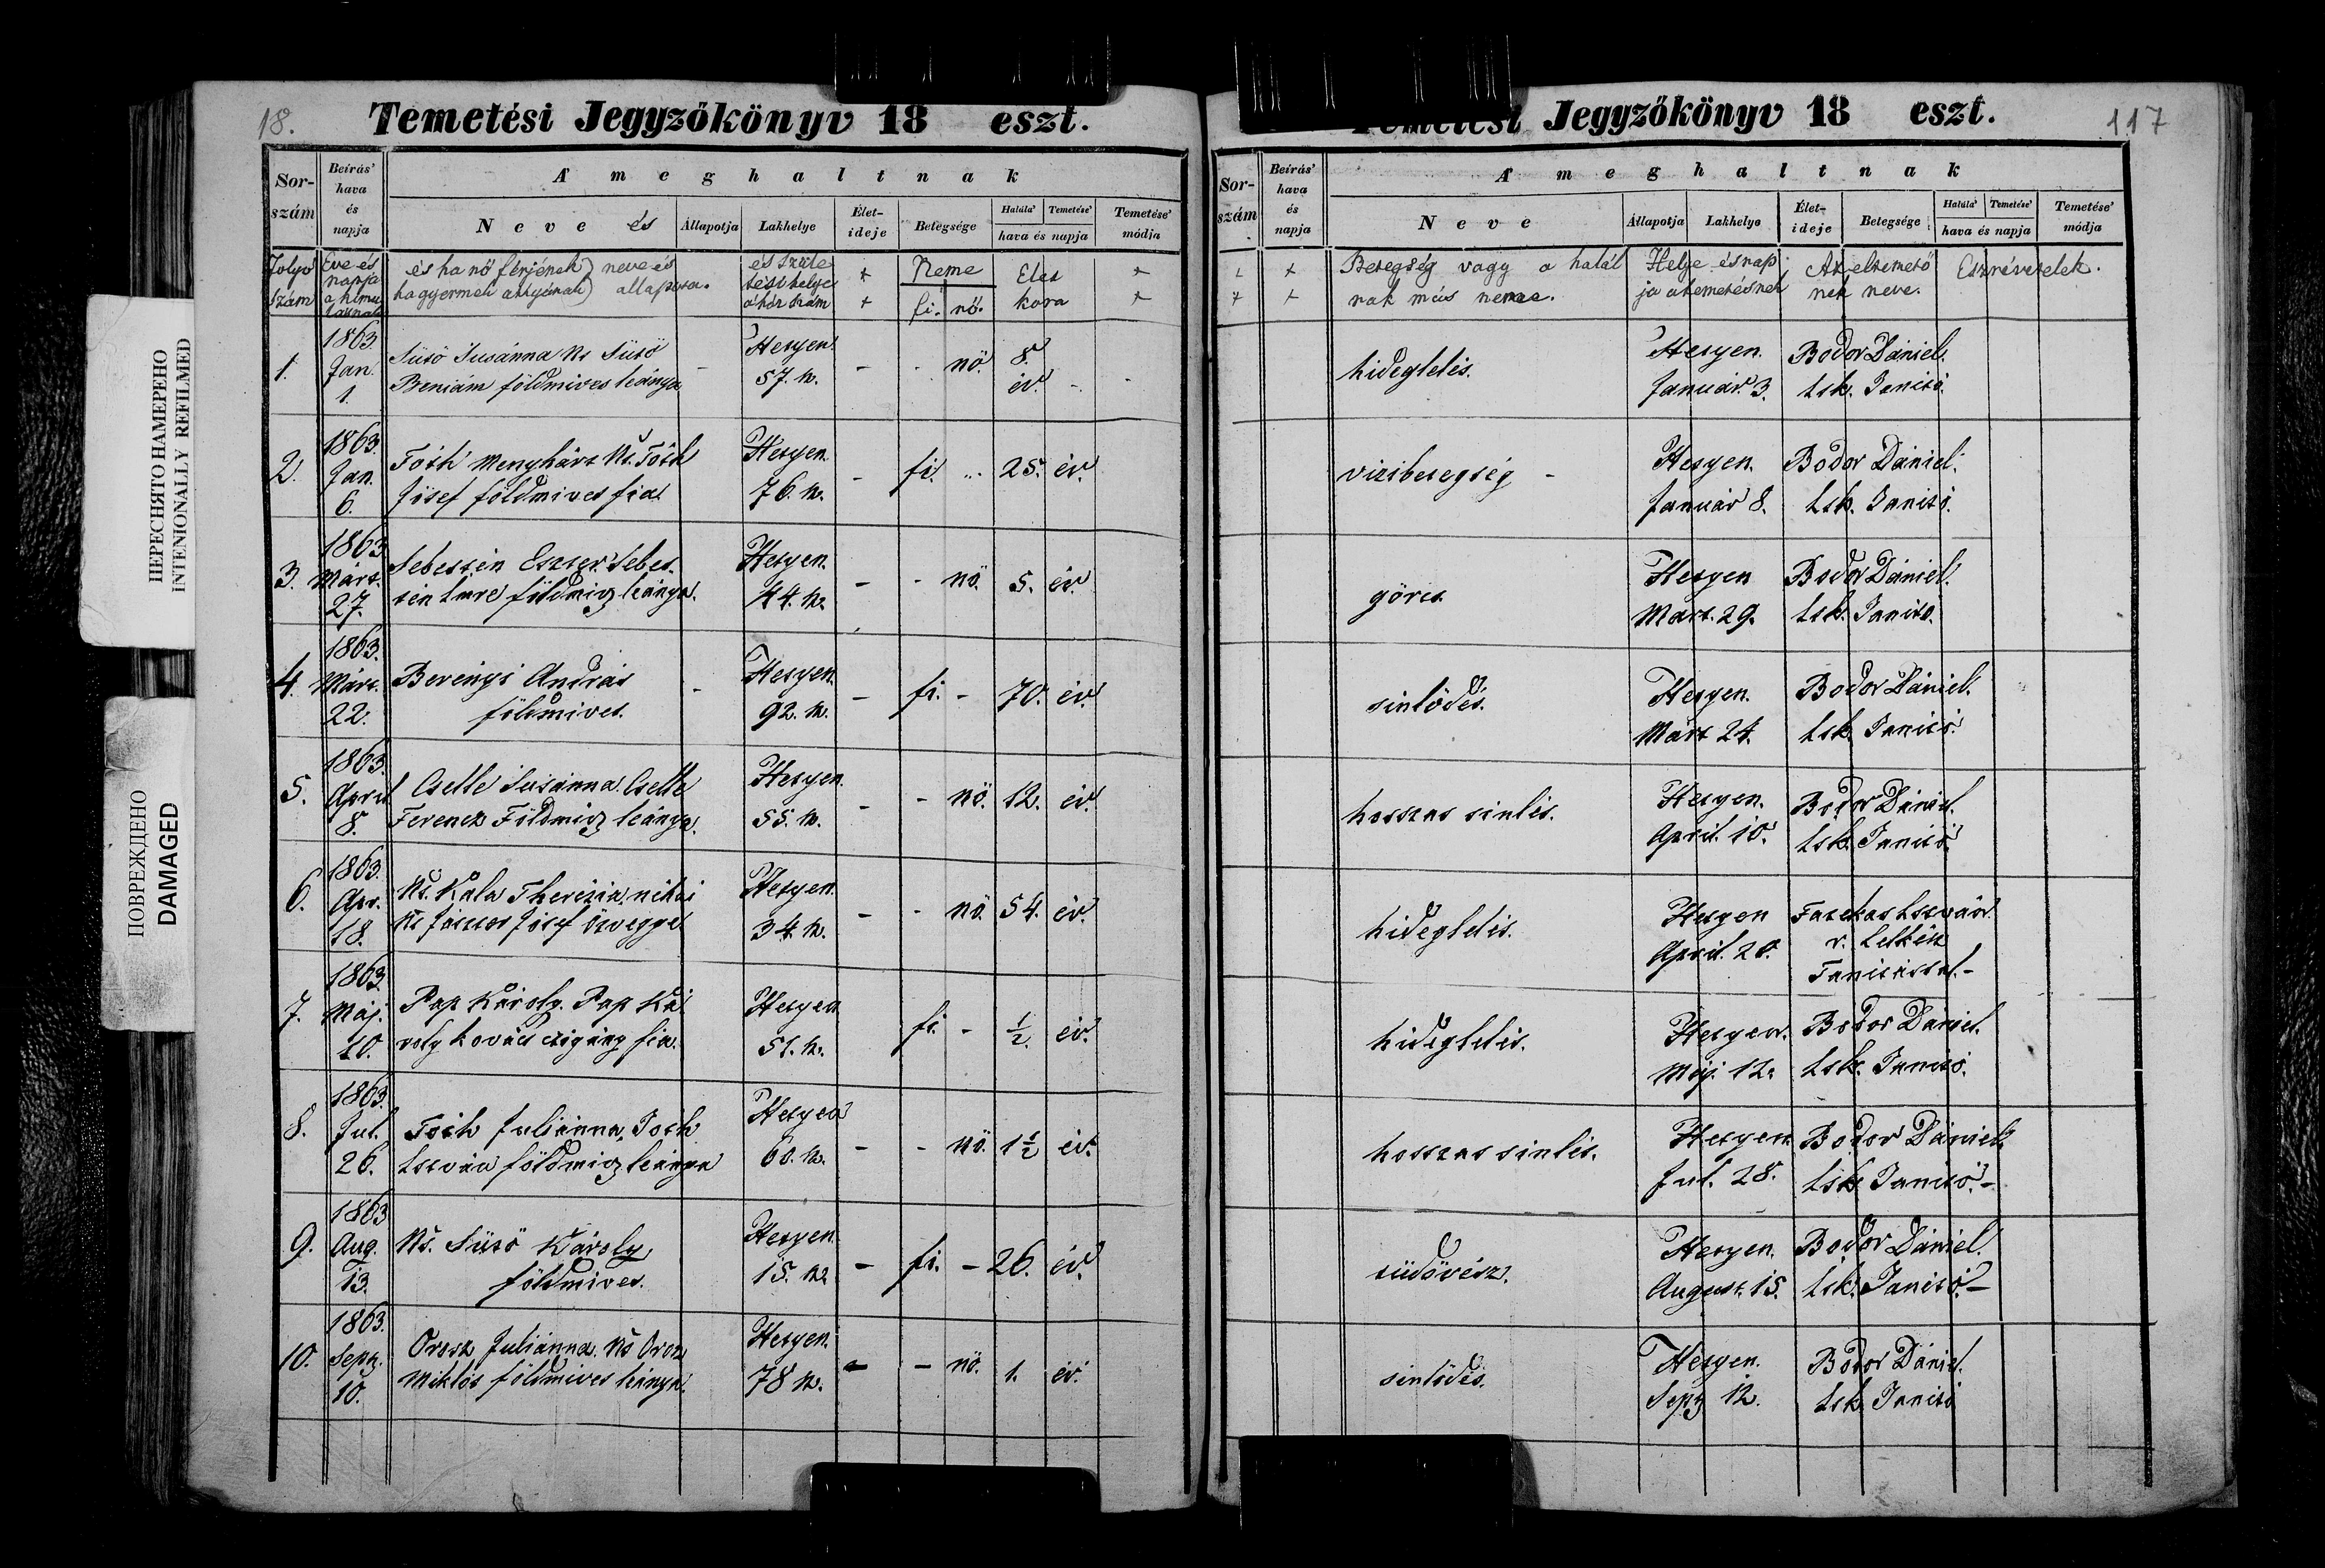 ПЕРЕСНЯТО НАМЕРЕНО
INTENIONALLY REFILMED
ПОВРЕЖДЕНО
DAMAGED
18.
Temetési Jegyzőkönyv 18 eszt.
Sor-szám
Beírás' hava és napja
A' meghaltnak
Neve és
Állapotja
Lakhelye
Élet-ideje
Betegsége
Halála' Temetése'
hava és napja
Temetése' módja
folyó szám
Éve és napja a kimu
és ha nő férjének) neve és
ha gyermek attyának) állapota.
és Szüle
tési helye
a ház szám
+
+
Neme
fi. nő.
Élet
kora
+
+
1.
1863.
Jan.
1.
Süsö Susánna Ns Süsö
Beniám földmives leánya
Hetyen.
57. n.
- - nő. 8. év.
2.
1863.
Jan.
6.
Tóth Menyhárt Ns. Tóth
József földmives fia
Hetyen.
76. n.
- fi. 25. év.
3.
1863
Márt.
27.
Sebestén Eszter. Sebes-
tén Imre földmiv. leánya.
Hetyen.
44. n.
- - nő. 5. év.
4.
1863.
Márt.
22.
Berényi András
földmives.
Hetyen.
92. n.
- fi. - 70. év.
5.
1863.
April
8.
Cselle Susánna. Cselle
Ferencz Földmiv. leánya.
Hetyen.
55. n.
- - nő. 12. év.
6.
1863.
Apr.
18.
Ns. Kala Therézia, néhai
Ns József özvegye
Hetyen.
34. n.
- - nő. 54. év.
7.
1863.
Máj.
10.
Pap Károly. Pap Ká
roly kovács czigány fia.
Hetyen
51. n.
fi. - ½ év.
8.
1863.
Jul.
26.
Tóth Juliánna, Tóth
István földmiv. leánya
Hetyen
60. n.
- - nő. 1½ év.
9.
1863
Aug.
13.
Ns. Süsö Károly
földmives.
Hetyen.
15. n.
- fi. - 26. év.
10.
1863.
Sept.
10.
Orosz Juliánna. Ns Orosz
Miklós földmives leánya.
Hetyen.
78 n.
- - nő. 1. év.
117
Temetési Jegyzőkönyv 18 eszt.
Sor-szám
Beírás' hava és napja
A' meghaltnak
Neve
Állapotja
Lakhelye
Élet-ideje
Betegsége
Halála' Temetése'
hava és napja
Temetése' módja
+ + Betegség vagy a halál
+ + nak más neme.
Helye és nap
ja a temetésnek
Az eltemető
nek neve.
Észrevételek.
hideglelés.
Hetyen.
Január 3.
Bodor Dániel.
hely. Tanitó.
vizibetegség -
Hetyen.
Január 8.
Bodor Dániel.
Tanitó.
görcs
Hetyen
Márt. 29.
Bodor Dániel.
Tanitó.
sinlődés.
Hetyen.
Márt 24.
Bodor Dániel.
Tanitó.
hosszas sinlés.
Hetyen.
April. 10.
Bodor Dániel.
Tanitó.
hideglelés.
Hetyen
April. 20.
Fazekas István
r. Lelkész
Tanitással.-
hideglelés.
Hetyen.
Máj. 12.
Bodor Dániel.
Tanitó.
hosszas sinlés.
Hetyen
Jul. 28.
Bodor Dániel
Tanitó.-
tüdővész.
Hetyen.
August. 15.
Bodor Dániel.
Tanitó.-
sinlődés.
Hetyen.
Sept 12.
Bodor Dániel.
Tanitó